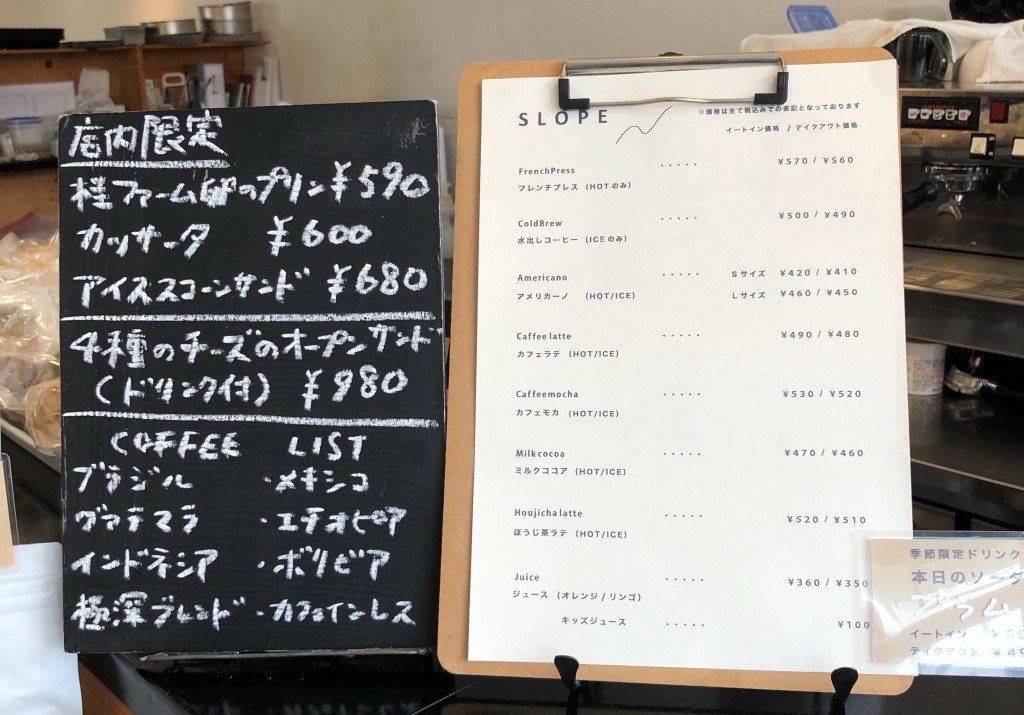 店内限定
桂ファーム卵のプリン ¥590
カッサータ ¥600
アイススコーンサンド ¥680
4種のチーズのオープンサンド
(ドリンク付) ¥980
COFFEE LIST
ブラジル ・メキシコ
グァテマラ ・エチオピア
インドネシア ・ボリビア
極深ブレンド ・カフェインレス
SLOPE
※価格は全て税込みでの表記となっております
イートイン価格 / テイクアウト価格
FrenchPress ・・・・・ ¥570 / ¥560
フレンチプレス (HOTのみ)
ColdBrew ・・・・・ ¥500 / ¥490
水出しコーヒー (ICEのみ)
Americano ・・・・・ Sサイズ ¥420 / ¥410
アメリカーノ (HOT/ICE) Lサイズ ¥460 / ¥450
Caffee latte ・・・・・ ¥490 / ¥480
カフェラテ (HOT/ICE)
Caffeemocha ・・・・・ ¥530 / ¥520
カフェモカ (HOT/ICE)
Milk cocoa ・・・・・ ¥470 / ¥460
ミルクココア (HOT/ICE)
Houjicha latte ・・・・・ ¥520 / ¥510
ほうじ茶ラテ (HOT/ICE)
Juice ・・・・・ ¥360 / ¥350
ジュース (オレンジ / リンゴ)
キッズジュース ・・・・・ ¥100
季節限定ドリンク
本日のソーダ
イートイン
テイクアウト